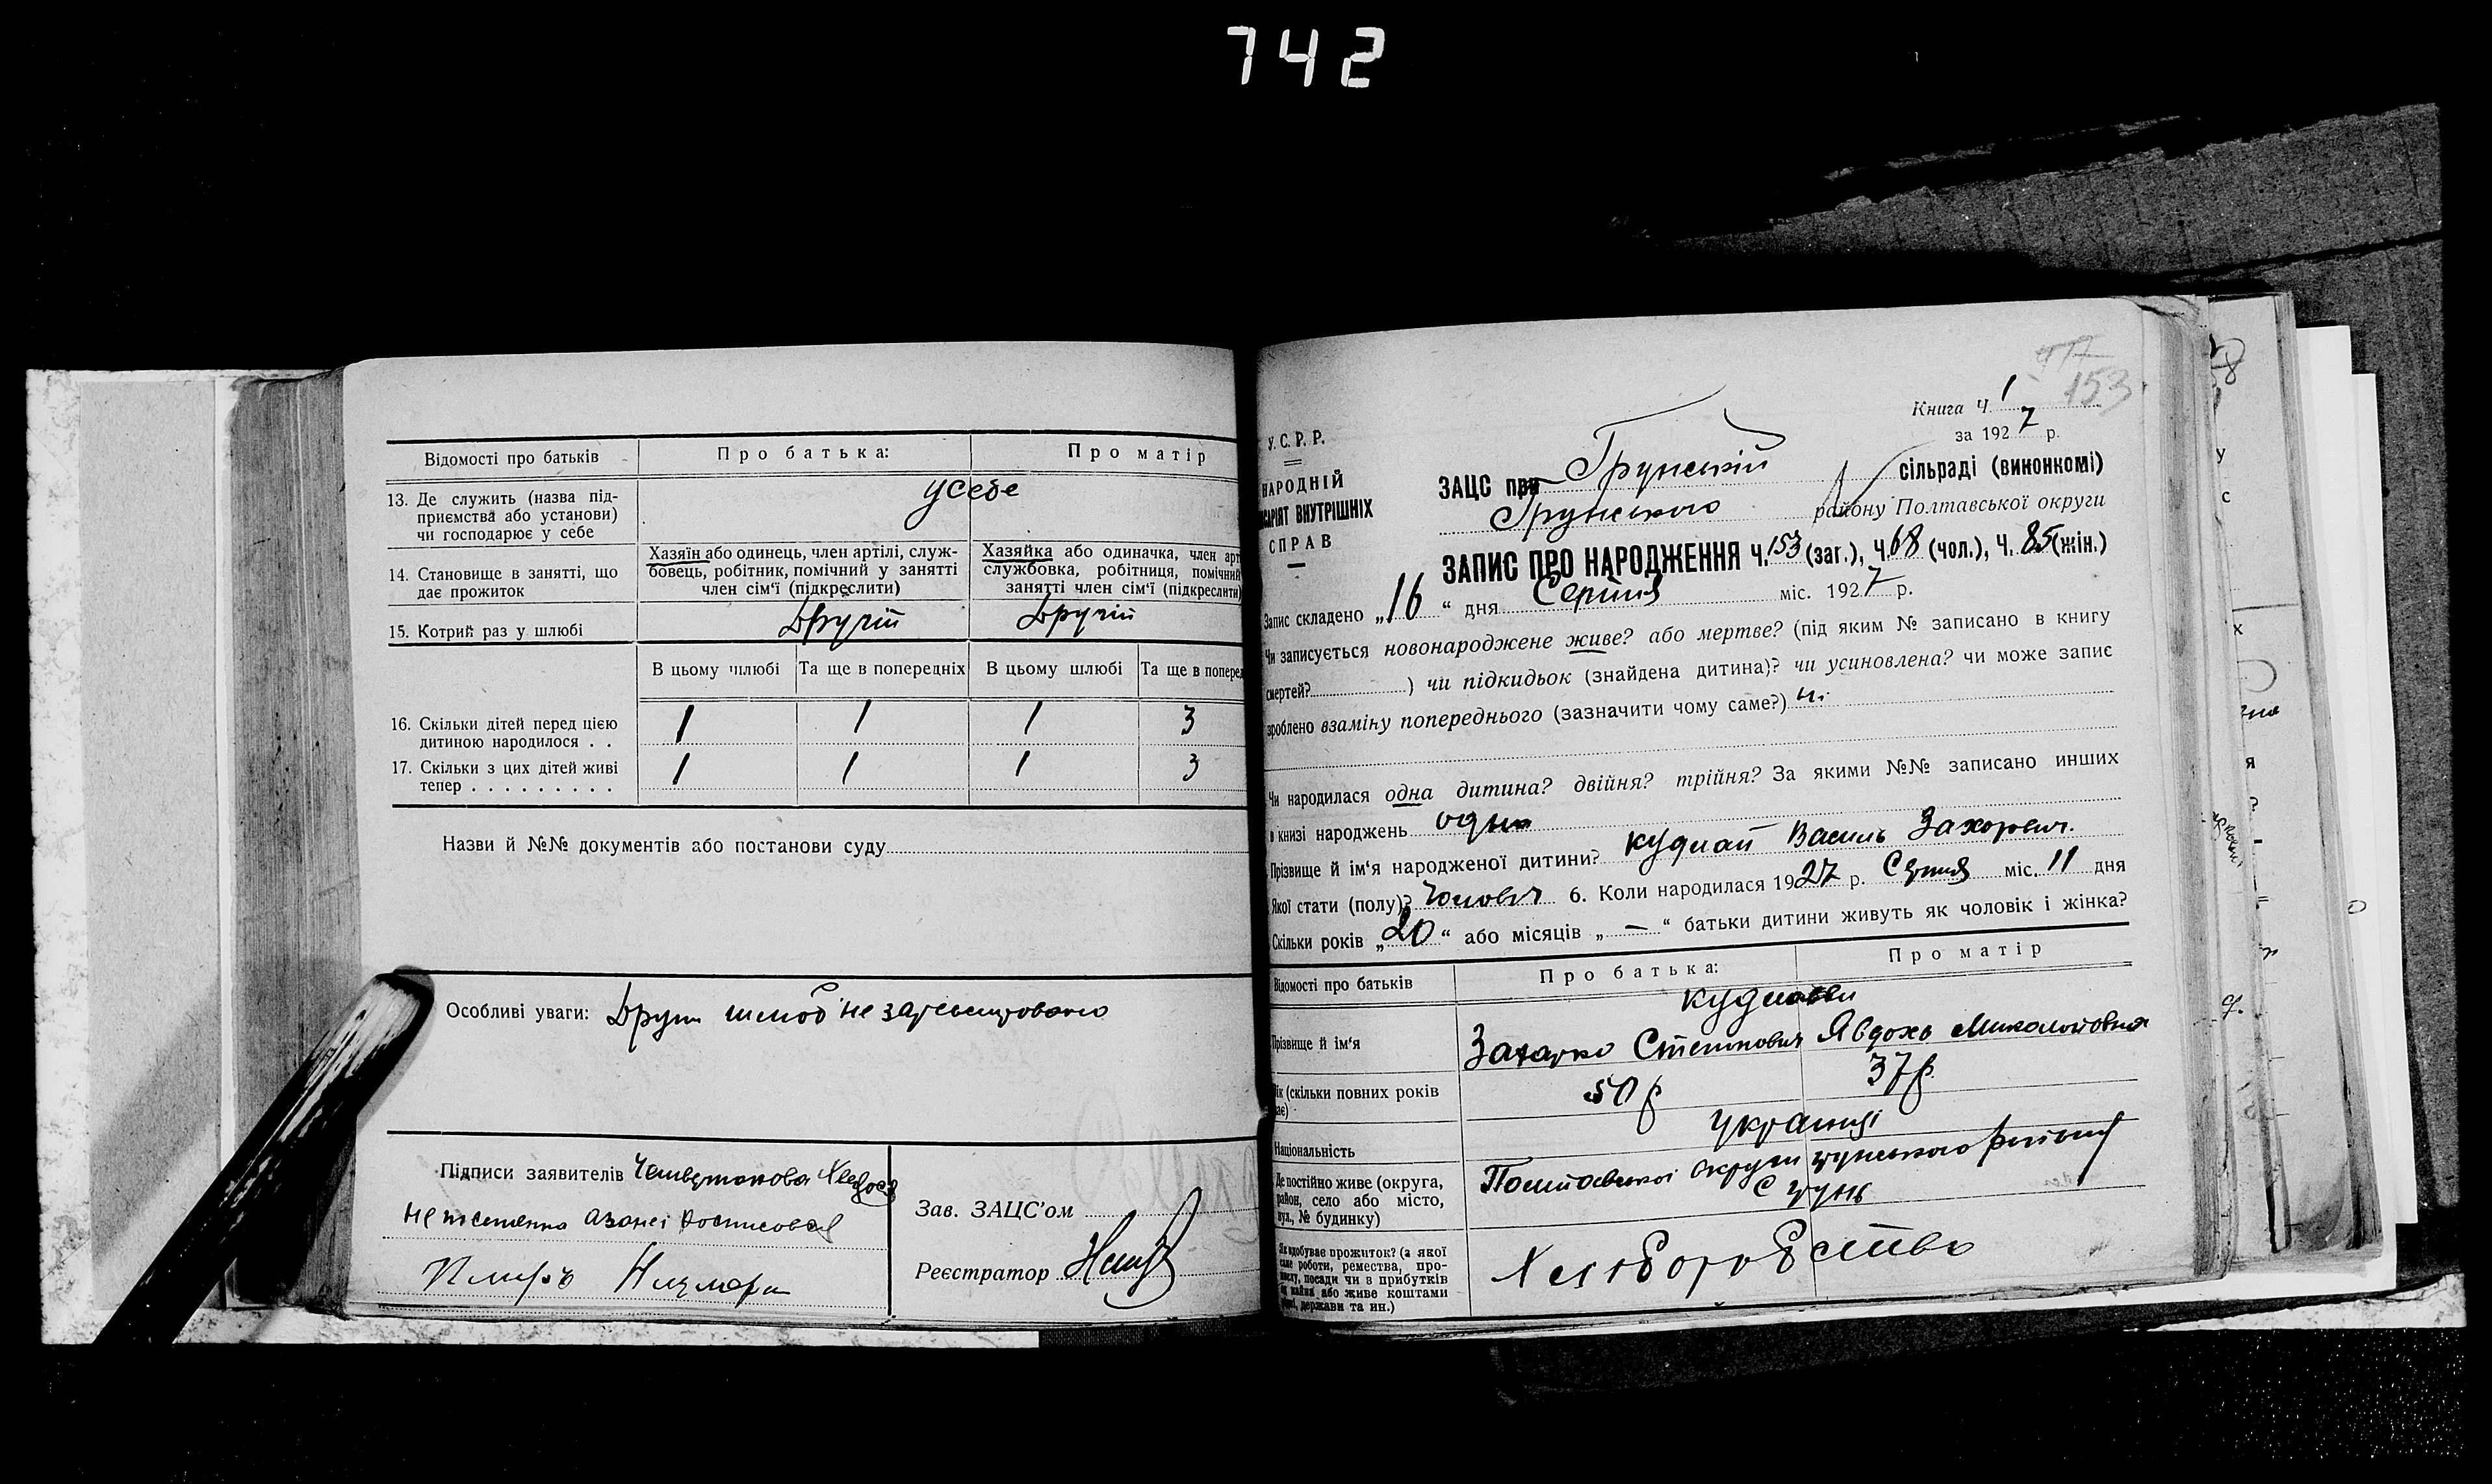 742
Відомості про батьків
Про батька:
Про матір
13. Де служить (назва під-
приємства або установи)
чи господарює у себе
усебе
14. Становище в занятті, що
дає прожиток
Хазяїн або одинець, член артілі, служ-
бовець, робітник, помічний у занятті
член сім'ї (підкреслити)
Хазяйка або одиначка, член арт
службовка, робітниця, помічний
занятті член сім'ї (підкреслити)
15. Котрий раз у шлюбі
Другий
Другий
В цьому шлюбі
Та ще в попередніх
В цьому шлюбі
Та ще в поперед
16. Скільки дітей перед цією
дитиною народилося . .
1 1 1 3
17. Скільки з цих дітей живі
тепер . . . . . . . . .
1 1 1 3
Назви й №№ документів або постанови суду
Особливі уваги: Други шлюб не зареєстровано
Підписи заявителів
Зав. ЗАЦС'ом
Реєстратор
153
Книга Ч. 1
за 1927 р.
У.С.Р.Р.
НАРОДНІЙ
САРІЯТ ВНУТРІШНІХ
СПРАВ
ЗАЦС при Грунській сільраді (винонкомі)
Грунського району Полтавської округи
ЗАПИС ПРО НАРОДЖЕННЯ Ч. 153 (заг.), Ч. 68 (чол.), Ч. 85 (жін.)
Запис складено „16“ дня Серпня міс. 1927 р.
Чи записується новонароджене живе? або мертве? (під яким № записано в книгу
смертей? ) чи підкидьок (знайдена дитина)? чи усиновлена? чи може запис
зроблено взаміну попереднього (зазначити чому саме?)
Чи народилася одна дитина? двійня? трійня? За якими №№ записано инших
в книзі народжень одна
Прізвище й ім'я народженої дитини? Кудлай Василь Захорович.
Якої стати (полу)? Чоловіч 6. Коли народилася 1927 р. Серпня міс. 11 дня
Скільки років „20“ або місяців „—“ батьки дитини живуть як чоловік і жінка?
Відомості про батьків
Про батька:
Про матір
Прізвище й ім'я
Кудлаєви
Захарко Степанович Явдоха Миколаївна
Вік (скільки повних років
має)
50 р 37 р.
Національність
Українці
Де постійно живе (округа,
район, село або місто,
вул., № будинку)
Полтавської округи грунського району
с грунь
Як здобуває прожиток? (з якої
саме роботи, ремества, про-
мислу, посади чи в прибутків
майна або живе коштами
держави та ин.)
Хліборобство